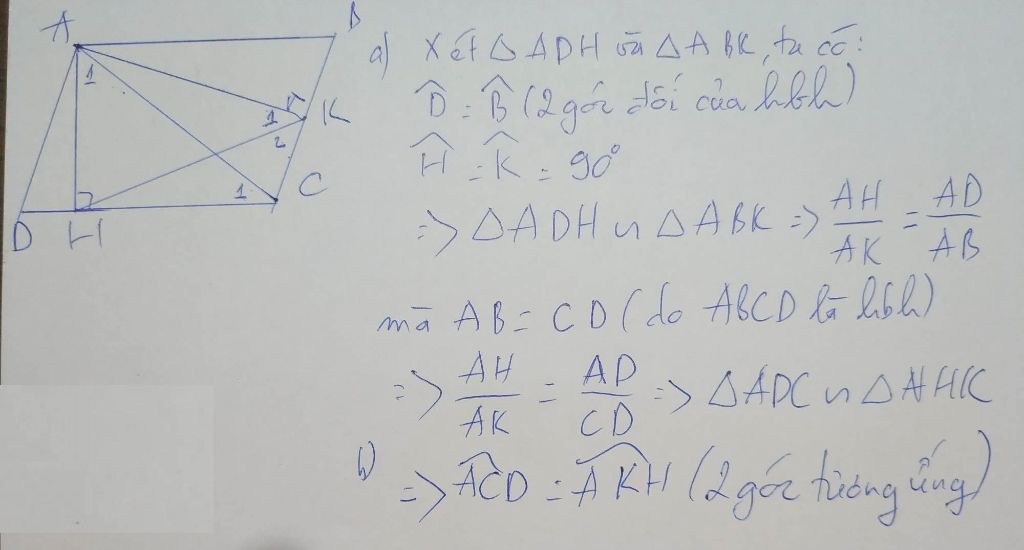 A
B
1
1
K
2
1
C
D
H
a) Xét △ ADH và △ ABK, ta có:
D̂ = B̂ (2 góc đối của hbh)
Ĥ = K̂ = 90°
=> △ADH ∽ △ABK => AH/AK = AD/AB
mà AB = CD (do ABCD là hbh)
=> AH/AK = AD/CD => △ADC ∽ △AHK
b) => ACD = AKH (2 góc tương ứng)